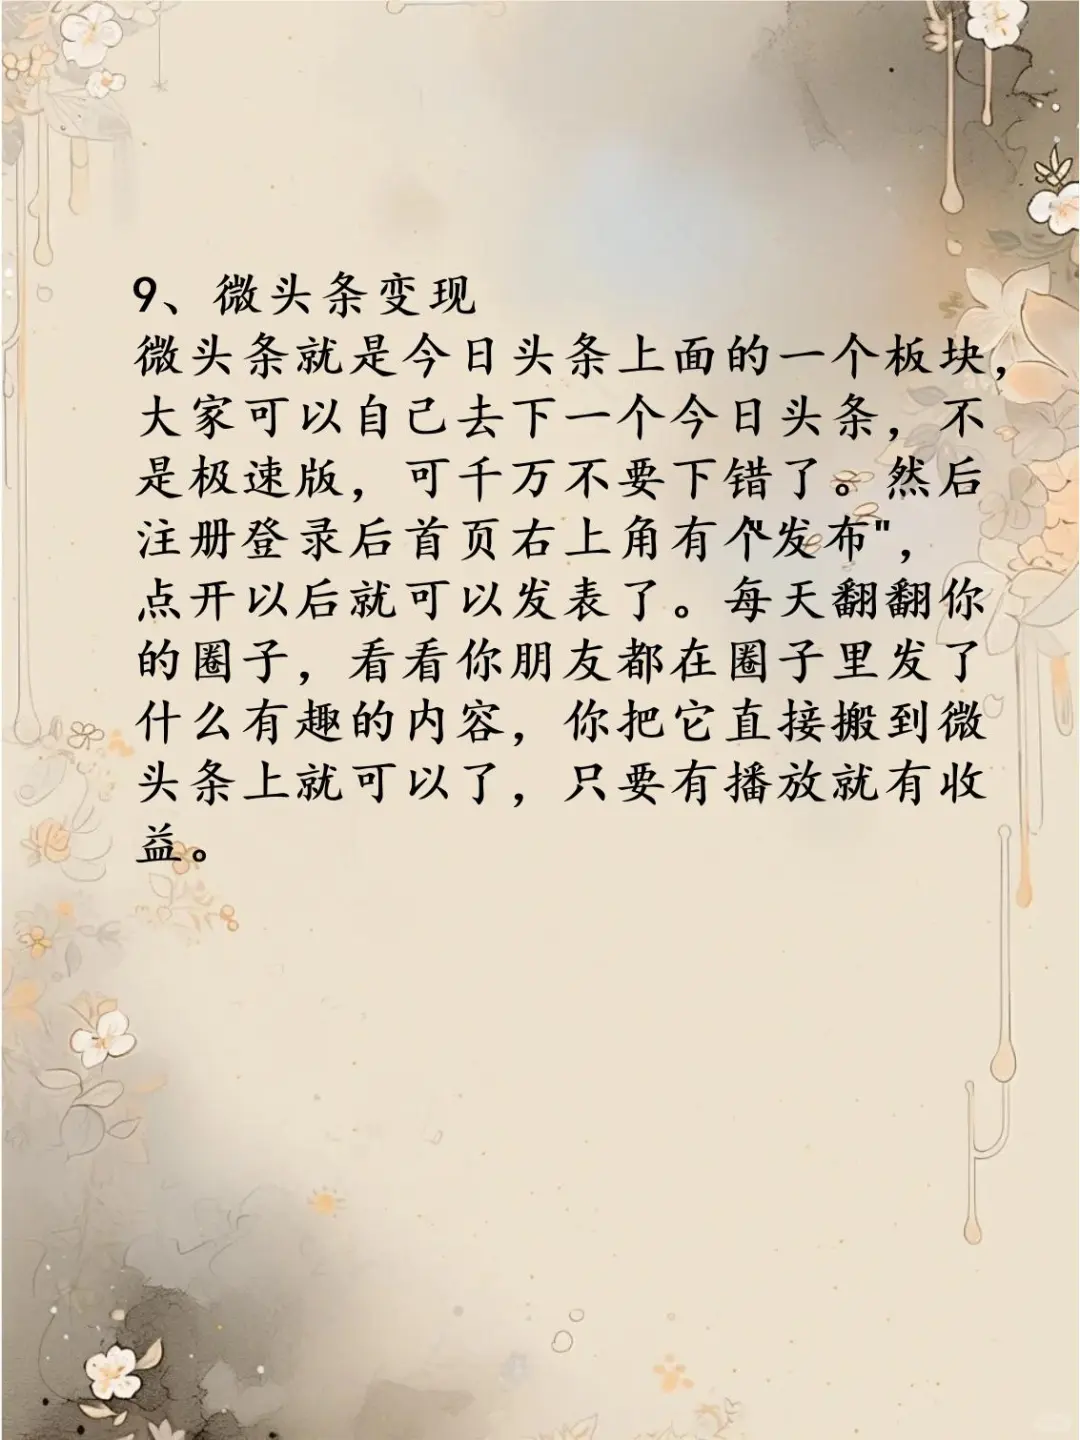 9、微头条变现
微头条就是今日头条上面的一个板块，
大家可以自己去下一个今日头条，不
是极速版，可千万不要下错了。然后
注册登录后首页右上角有个"发布"，
点开以后就可以发表了。每天翻翻你
的圈子，看看你朋友都在圈子里发了
什么有趣的内容，你把它直接搬到微
头条上就可以了，只要有播放就有收
益。